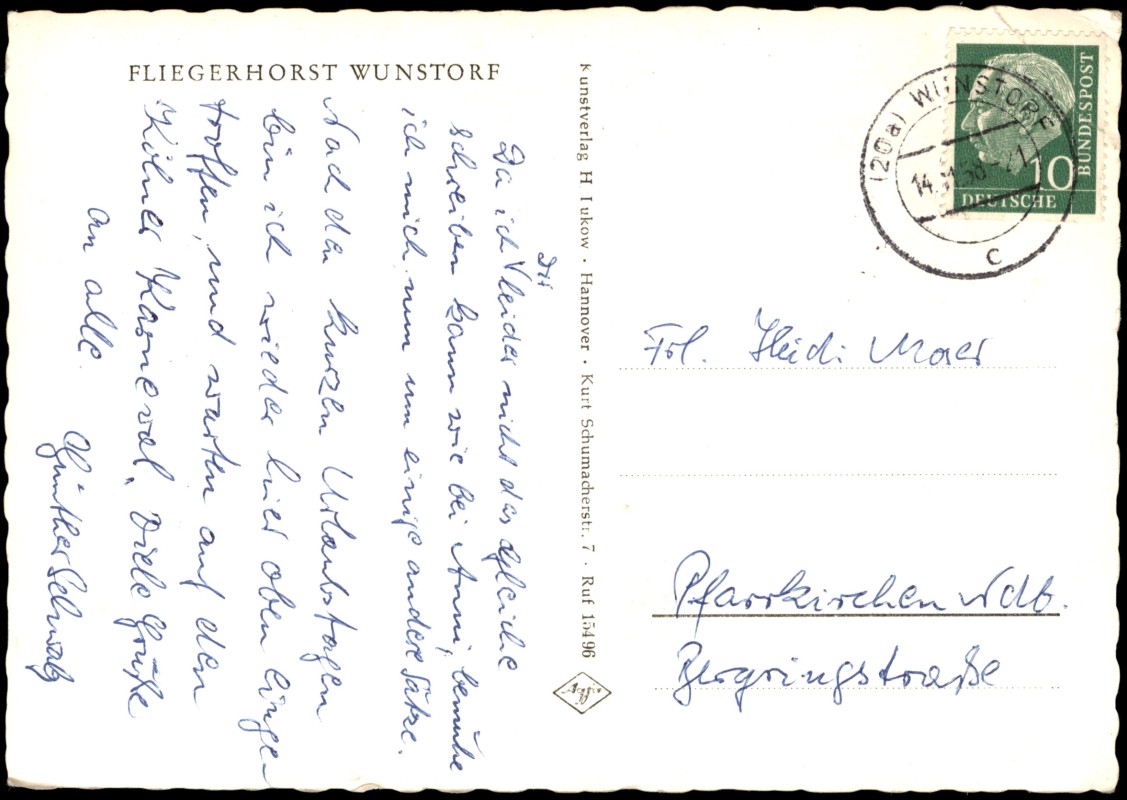 FLIEGERHORST WUNSTORF
Da ich Dir leider nicht das gleiche
schreiben kann wie bei Anni, bemühe
ich mich nun um einige andere Sätze.
Nach den kurzen Urlaubstagen
bin ich wieder hier oben einge-
troffen, und warten auf den
Kölner Karneval. Viele Grüße
an alle.
Günther Schwalz
Kunstverlag H Lukow · Hannover · Kurt Schumacherstr. 7 · Ruf 15496
Agfa
(20a) WUNSTORF
14.
58
c
BUNDESPOST
10
DEUTSCHE
Frl. Heidi Maer
Pfarrkirchen Ndb.
Bergringstraße